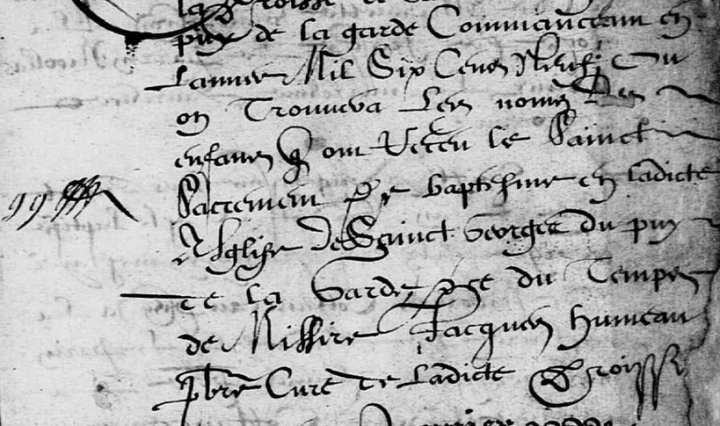 la paroisse de
puy de la garde Commanceant en
Lannee Mil Six Cens Neuf ou
on Trouvera Les noms Des
enfans q ont Receu le Sainct
Sacrement de baptesme en ladicte
99
Esglise de Sainct Georges du puy
de la Garde du Temps
de Missire Jacques Humeau
pbre Cure de Ladicte paroisse